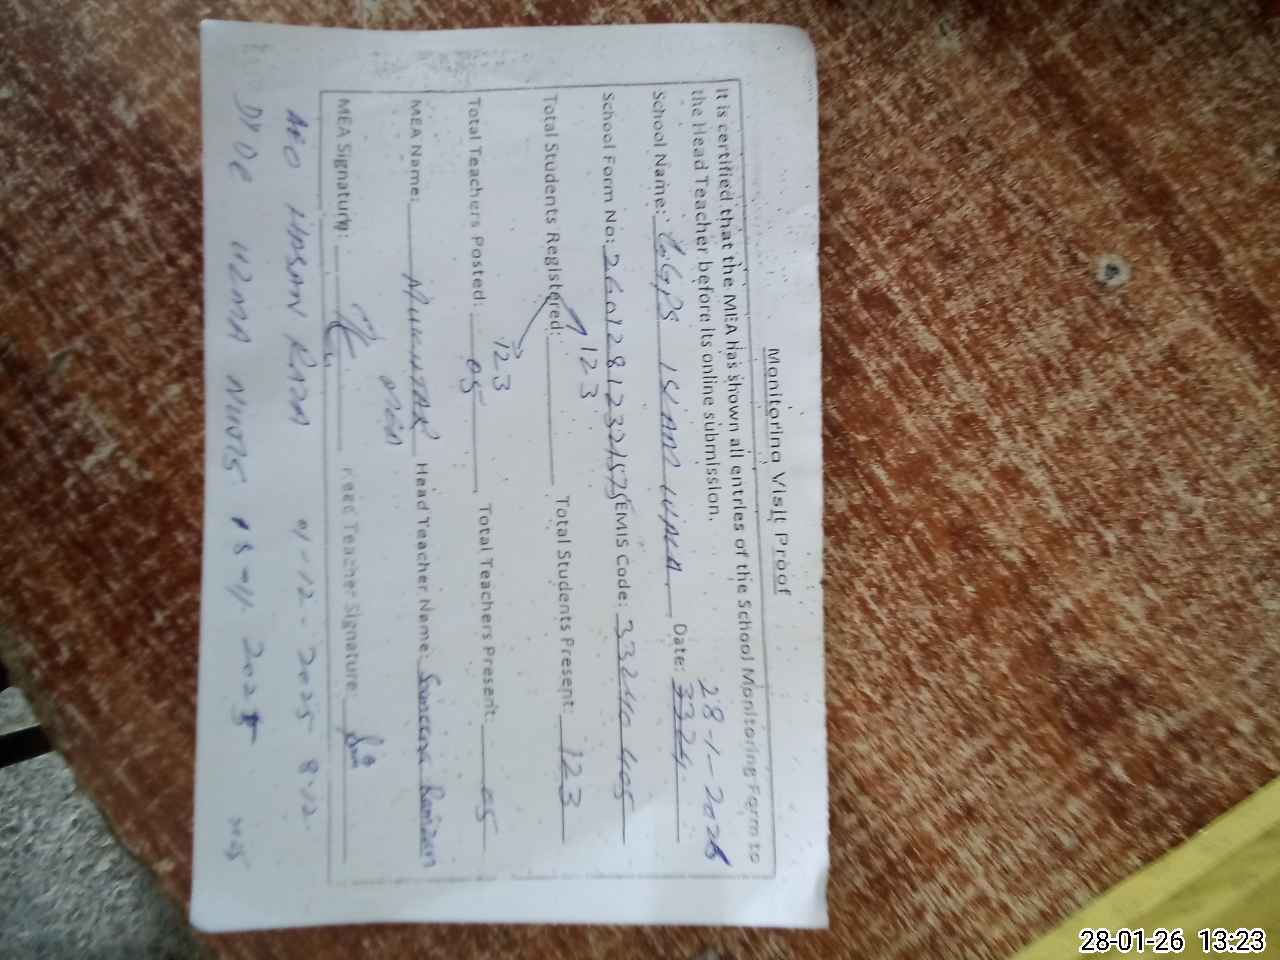 Monitoring Visit Proof
It is certified that the MEA has shown all entries of the School Monitoring Form to
the Head Teacher before its online submission.
28-1-2026
School Name: GGPS ISLAM WALA Date: 3324
School Form No: 26012812321575 EMIS Code: 33240405
123
Total Students Registered: Total Students Present: 123
123
Total Teachers Posted: 05 Total Teachers Present: 05
MEA Name: MUKHTAR Head Teacher Name: Ramzan
MEA Signature: Head Teacher Signature:
AEO HASAN RAZA 01-12-2025 8:12
DY DE UZMA 18-11 2025
28-01-26 13:23